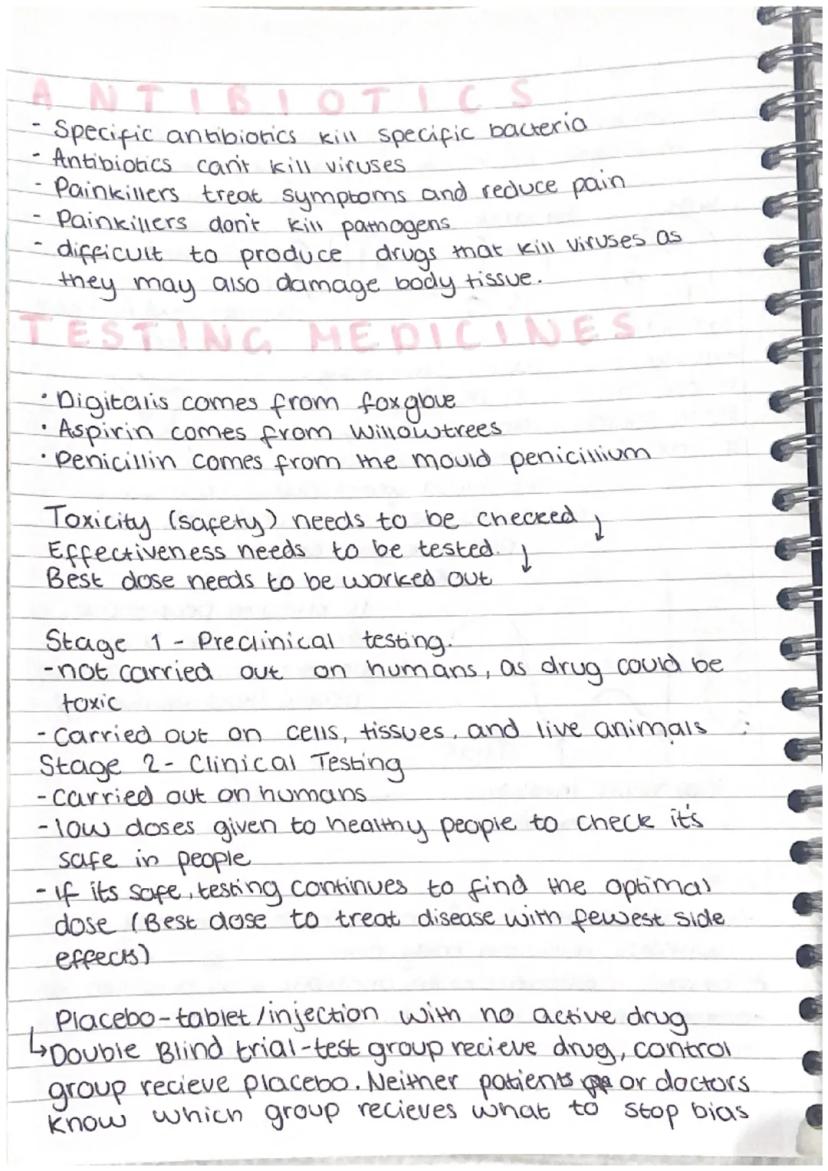 ANTIBIOTICS
- Specific antibiotics kill specific bacteria
- Antibiotics can't kill viruses
- Painkillers treat symptoms and reduce pain
- Painkillers don't kill pathogens
- difficult to produce drugs that kill viruses as
they may also damage body tissue.
TESTING MEDICINES
• Digitalis comes from foxglove
• Aspirin comes from willowtrees
• Penicillin comes from the mould penicillium
Toxicity (safety) needs to be checked ↓
Effectiveness needs to be tested. ↓
Best dose needs to be worked out
Stage 1 - Preclinical testing.
- not carried out on humans, as drug could be
toxic
- Carried out on cells, tissues, and live animals
Stage 2 - Clinical Testing
- Carried out on humans
- low doses given to healthy people to check it's
safe in people
- if its safe, testing continues to find the optimal
dose (Best dose to treat disease with fewest side
effects)
Placebo - tablet/injection with no active drug
↳ Double Blind trial - test group recieve drug, control
group recieve placebo. Neither patients or doctors
know which group recieves what to stop bias